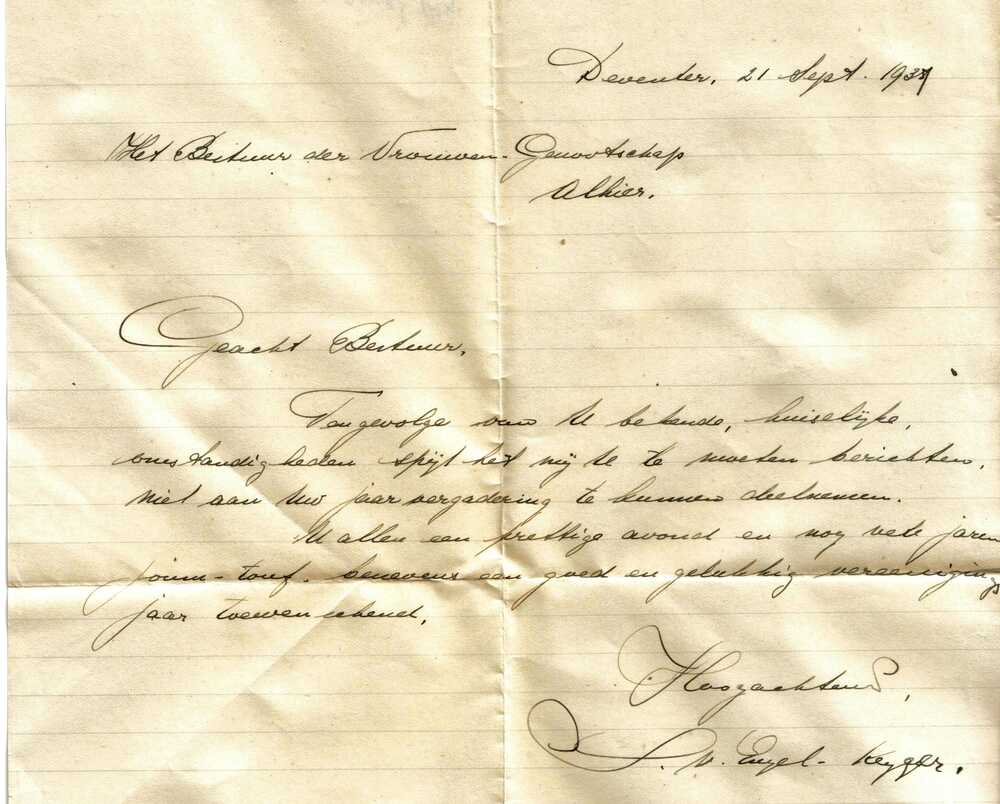 Deventer, 21 Sept. 1937
Het Bestuur der Vrouwen-Genootschap
Alhier.
Geacht Bestuur,
Tengevolge van U bekende, huiselijke,
omstandigheden spijt het mij U te moeten berichten,
niet aan Uw jaarvergadering te kunnen deelnemen.
U allen een prettige avond en nog vele jaren
joum-touf. benevens een goed en gelukkig vereenigings
jaar toewenschend,
Hoogachtend,
S. v. Engel-Keyzer.